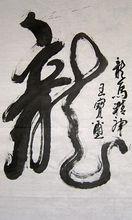 龍
龍馬精神
王寶國